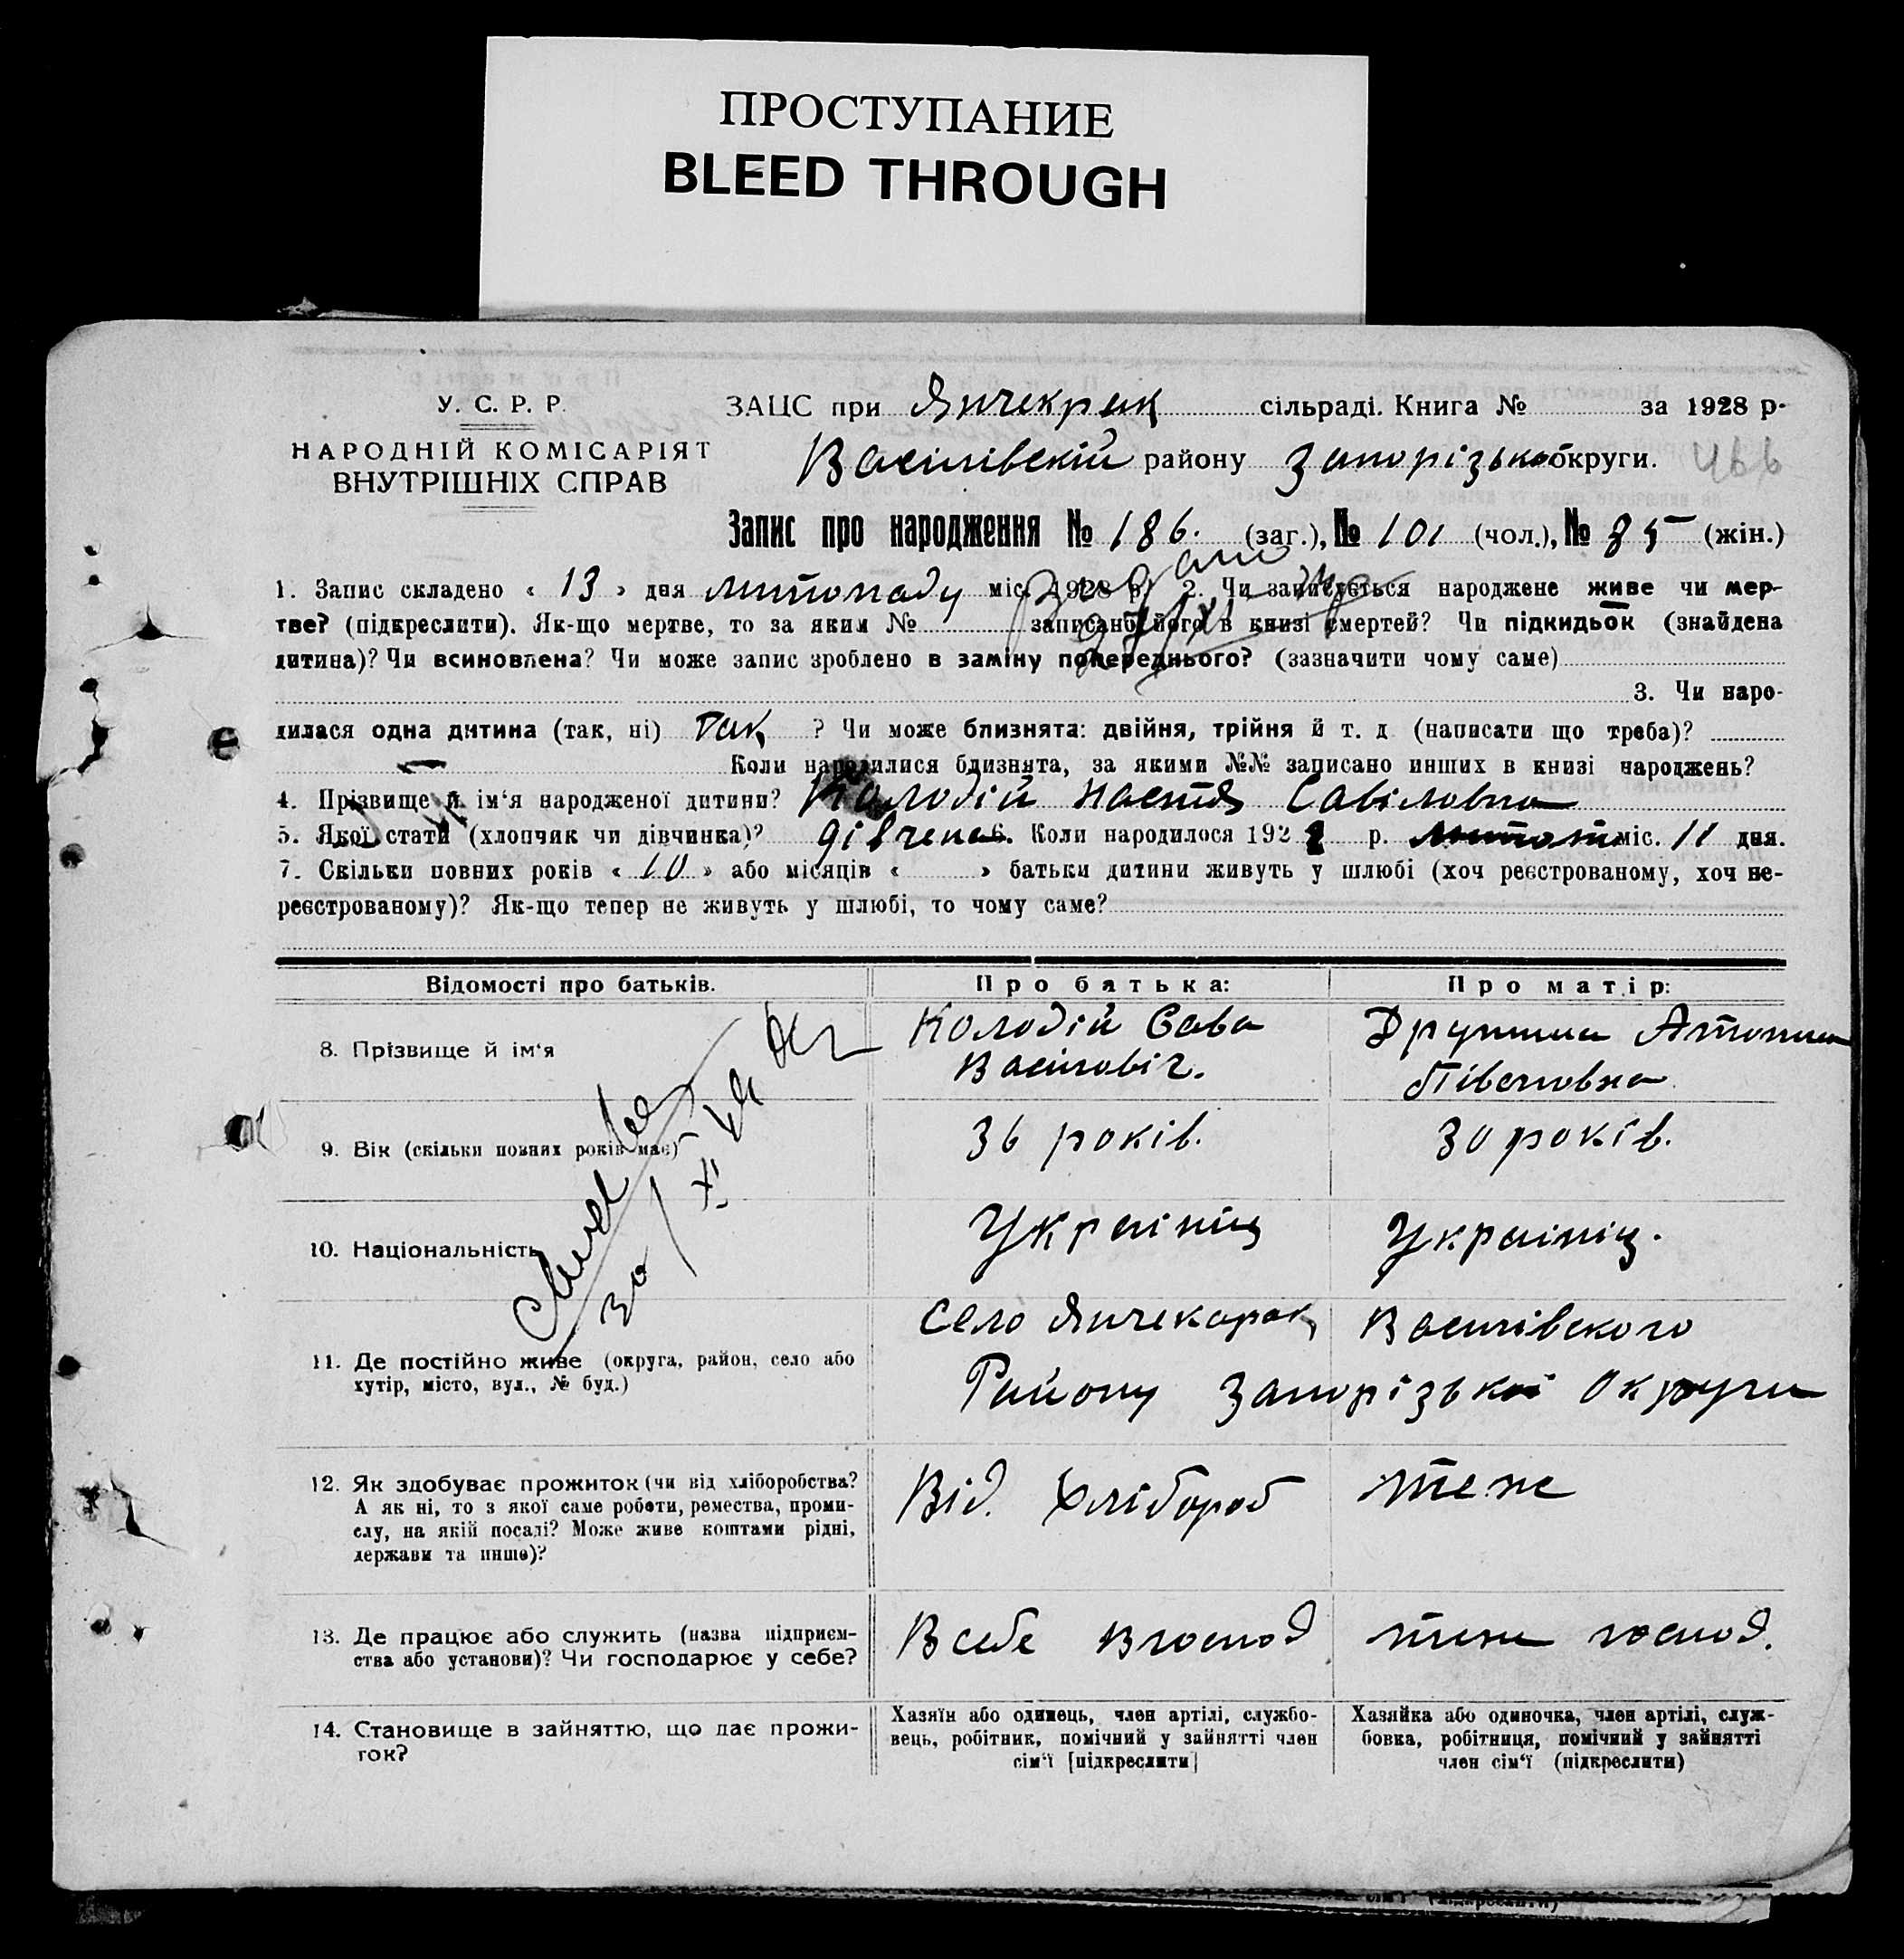 ПРОСТУПАНИЕ
BLEED THROUGH
У. С. Р. Р.
НАРОДНІЙ КОМІСАРІЯТ
ВНУТРІШНІХ СПРАВ
ЗАЦС при Янчекрак сільраді. Книга № за 1928 р.
Васілівскій району Запорізької округи.
Запис про народження № 186. (заг.), № 101 (чол.), № 85 (жін.)
1. Запис складено « 13 » дня листопаду міс. 1928 р. 2. Чи записується народжене живе чи мер-
тве? (підкреслити). Як-що мертве, то за яким № записано його в книзі смертей? Чи підкидьок (знайдена
дитина)? Чи всиновлена? Чи може запис зроблено в заміну попереднього? (зазначити чому саме)
3. Чи наро-
дилася одна дитина (так, ні) так ? Чи може близнята: двійня, трійня й т. д. (написати що треба)?
— Коли народилися близнята, за якими №№ записано инших в книзі народжень?
4. Прізвище й ім‘я народженої дитини? Колодій Настя Савіловна
5. Якої стати (хлопчик чи дівчинка)? дівчена 6. Коли народилося 1928 р. листоп міс. 11 дня.
7. Скільки повних років « 10 » або місяців « » батьки дитини живуть у шлюбі (хоч реєстрованому, хоч не-
реєстрованому)? Як-що тепер не живуть у шлюбі, то чому саме?
Відомості про батьків. Про батька: Про матір:
8. Прізвище й ім‘я
Колодій Сава
Васіловіч.
9. Вік (скільки повних років має) 36 років. 30 років.
10. Національність Украініц Украініц.
11. Де постійно живе (округа, район, село або
хутір, місто, вул., № буд.)
Село Янчекарак Васілівского
Району Запорізької Округи
12. Як здобуває прожиток (чи від хліборобства?
А як ні, то з якої саме роботи, ремества, проми-
слу, на якій посаді? Може живе коштами рідні,
держави та инше)?
Від. Хлібороб теж
13. Де працює або служить (назва підприєм-
ства або установи)? Чи господарює у себе?
В себе в господ теж господ.
14. Становище в зайняттю, що дає прожи-
ток?
Хазяїн або одинець, член артілі, службо-
вець, робітник, помічний у зайнятті член
сім‘ї [підкреслити]
Хазяйка або одиночка, член артілі, служ-
бовка, робітниця, помічний у зайнятті
член сім‘ї (підкреслити)